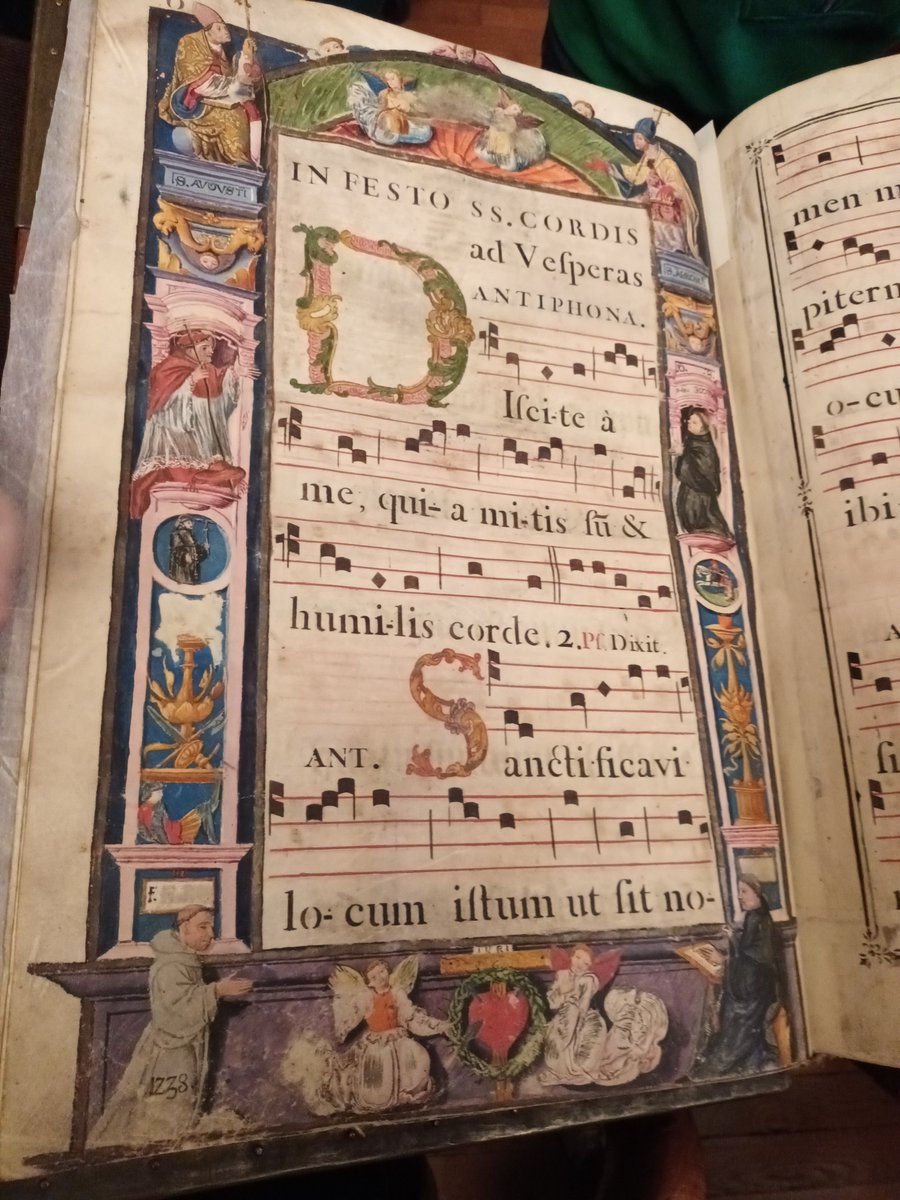 S. AVGVSTI
IN FESTO SS. CORDIS
ad Veſperas
ANTIPHONA.
D
Iſci-te à
me, qui-a mi-tis ſu̅ &
humi-lis corde. 2. Pſ. Dixit.
ANT. S ancti-ficavi
lo-cum iſtum ut ſit no-
F.
1238
men m
pitern
o-cu
ibi
A
ſi